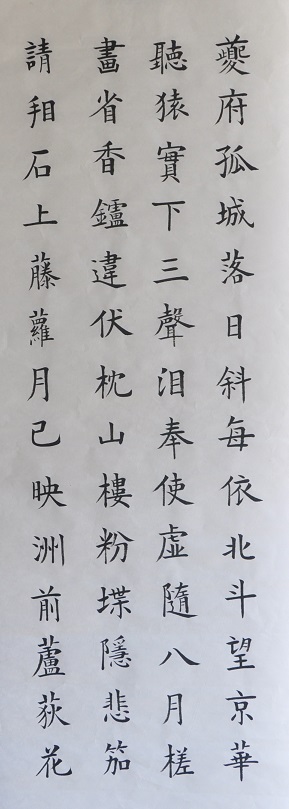 夔府孤城落日斜每依北斗望京華
聽猿實下三聲泪奉使虚隨八月槎
畫省香鑪違伏枕山樓粉堞隱悲笳
請看石上藤蘿月已映洲前蘆荻花